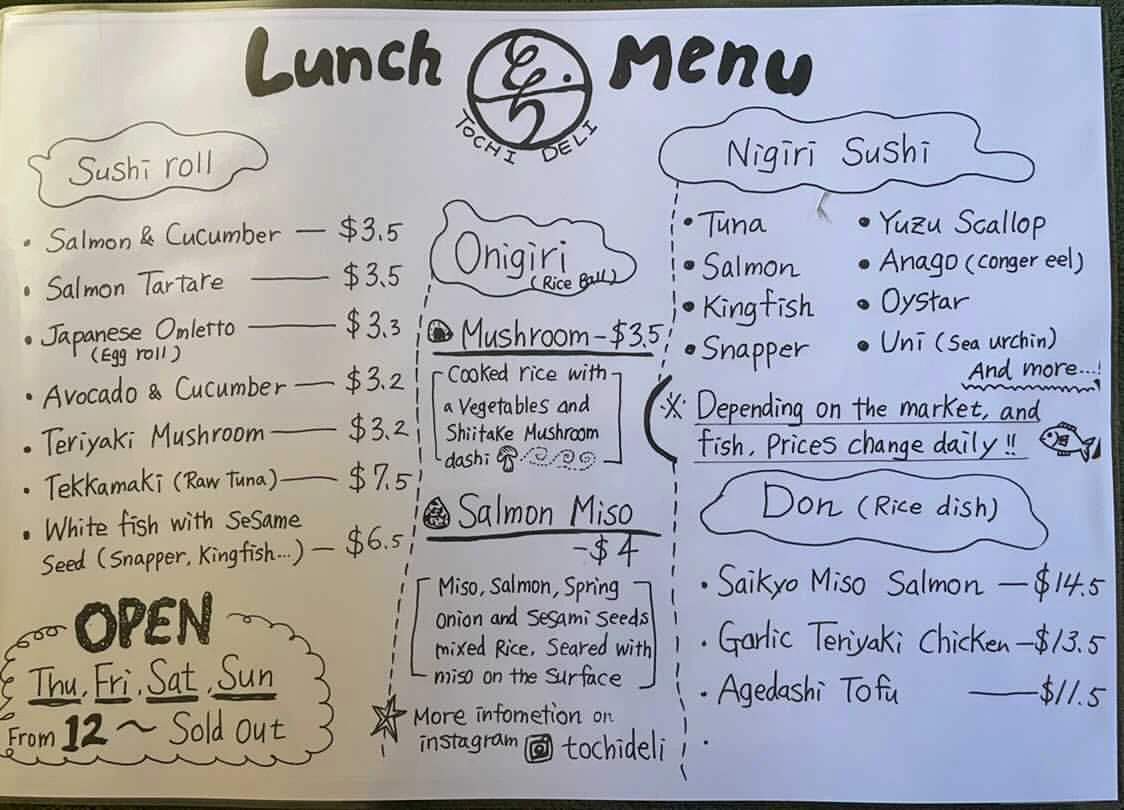 Lunch Menu
TOCHI DELI
Sushi roll
• Salmon & Cucumber — $3.5
• Salmon Tartare — $3.5
• Japanese Omletto — $3.3
(Egg roll)
• Avocado & Cucumber — $3.2
• Teriyaki Mushroom — $3.2
• Tekkamaki (Raw Tuna) — $7.5
• White fish with Sesame
Seed (Snapper, Kingfish...) — $6.5
OPEN
Thu, Fri, Sat, Sun
From 12 ~ Sold Out
Onigiri
(Rice Ball)
Mushroom - $3.5
Cooked rice with
a Vegetables and
Shiitake Mushroom
dashi
Salmon Miso
- $4
Miso, Salmon, Spring
onion and Sesami Seeds
mixed Rice. Seared with
miso on the Surface
More infometion on
instagram tochideli
Nigiri Sushi
• Tuna
• Salmon
• Kingfish
• Snapper
• Yuzu Scallop
• Anago (conger eel)
• Oystar
• Uni (Sea urchin)
And more...!
※ Depending on the market, and
fish, Prices change daily !!
Don (Rice dish)
• Saikyo Miso Salmon — $14.5
• Garlic Teriyaki Chicken — $13.5
• Agedashi Tofu — $11.5
•